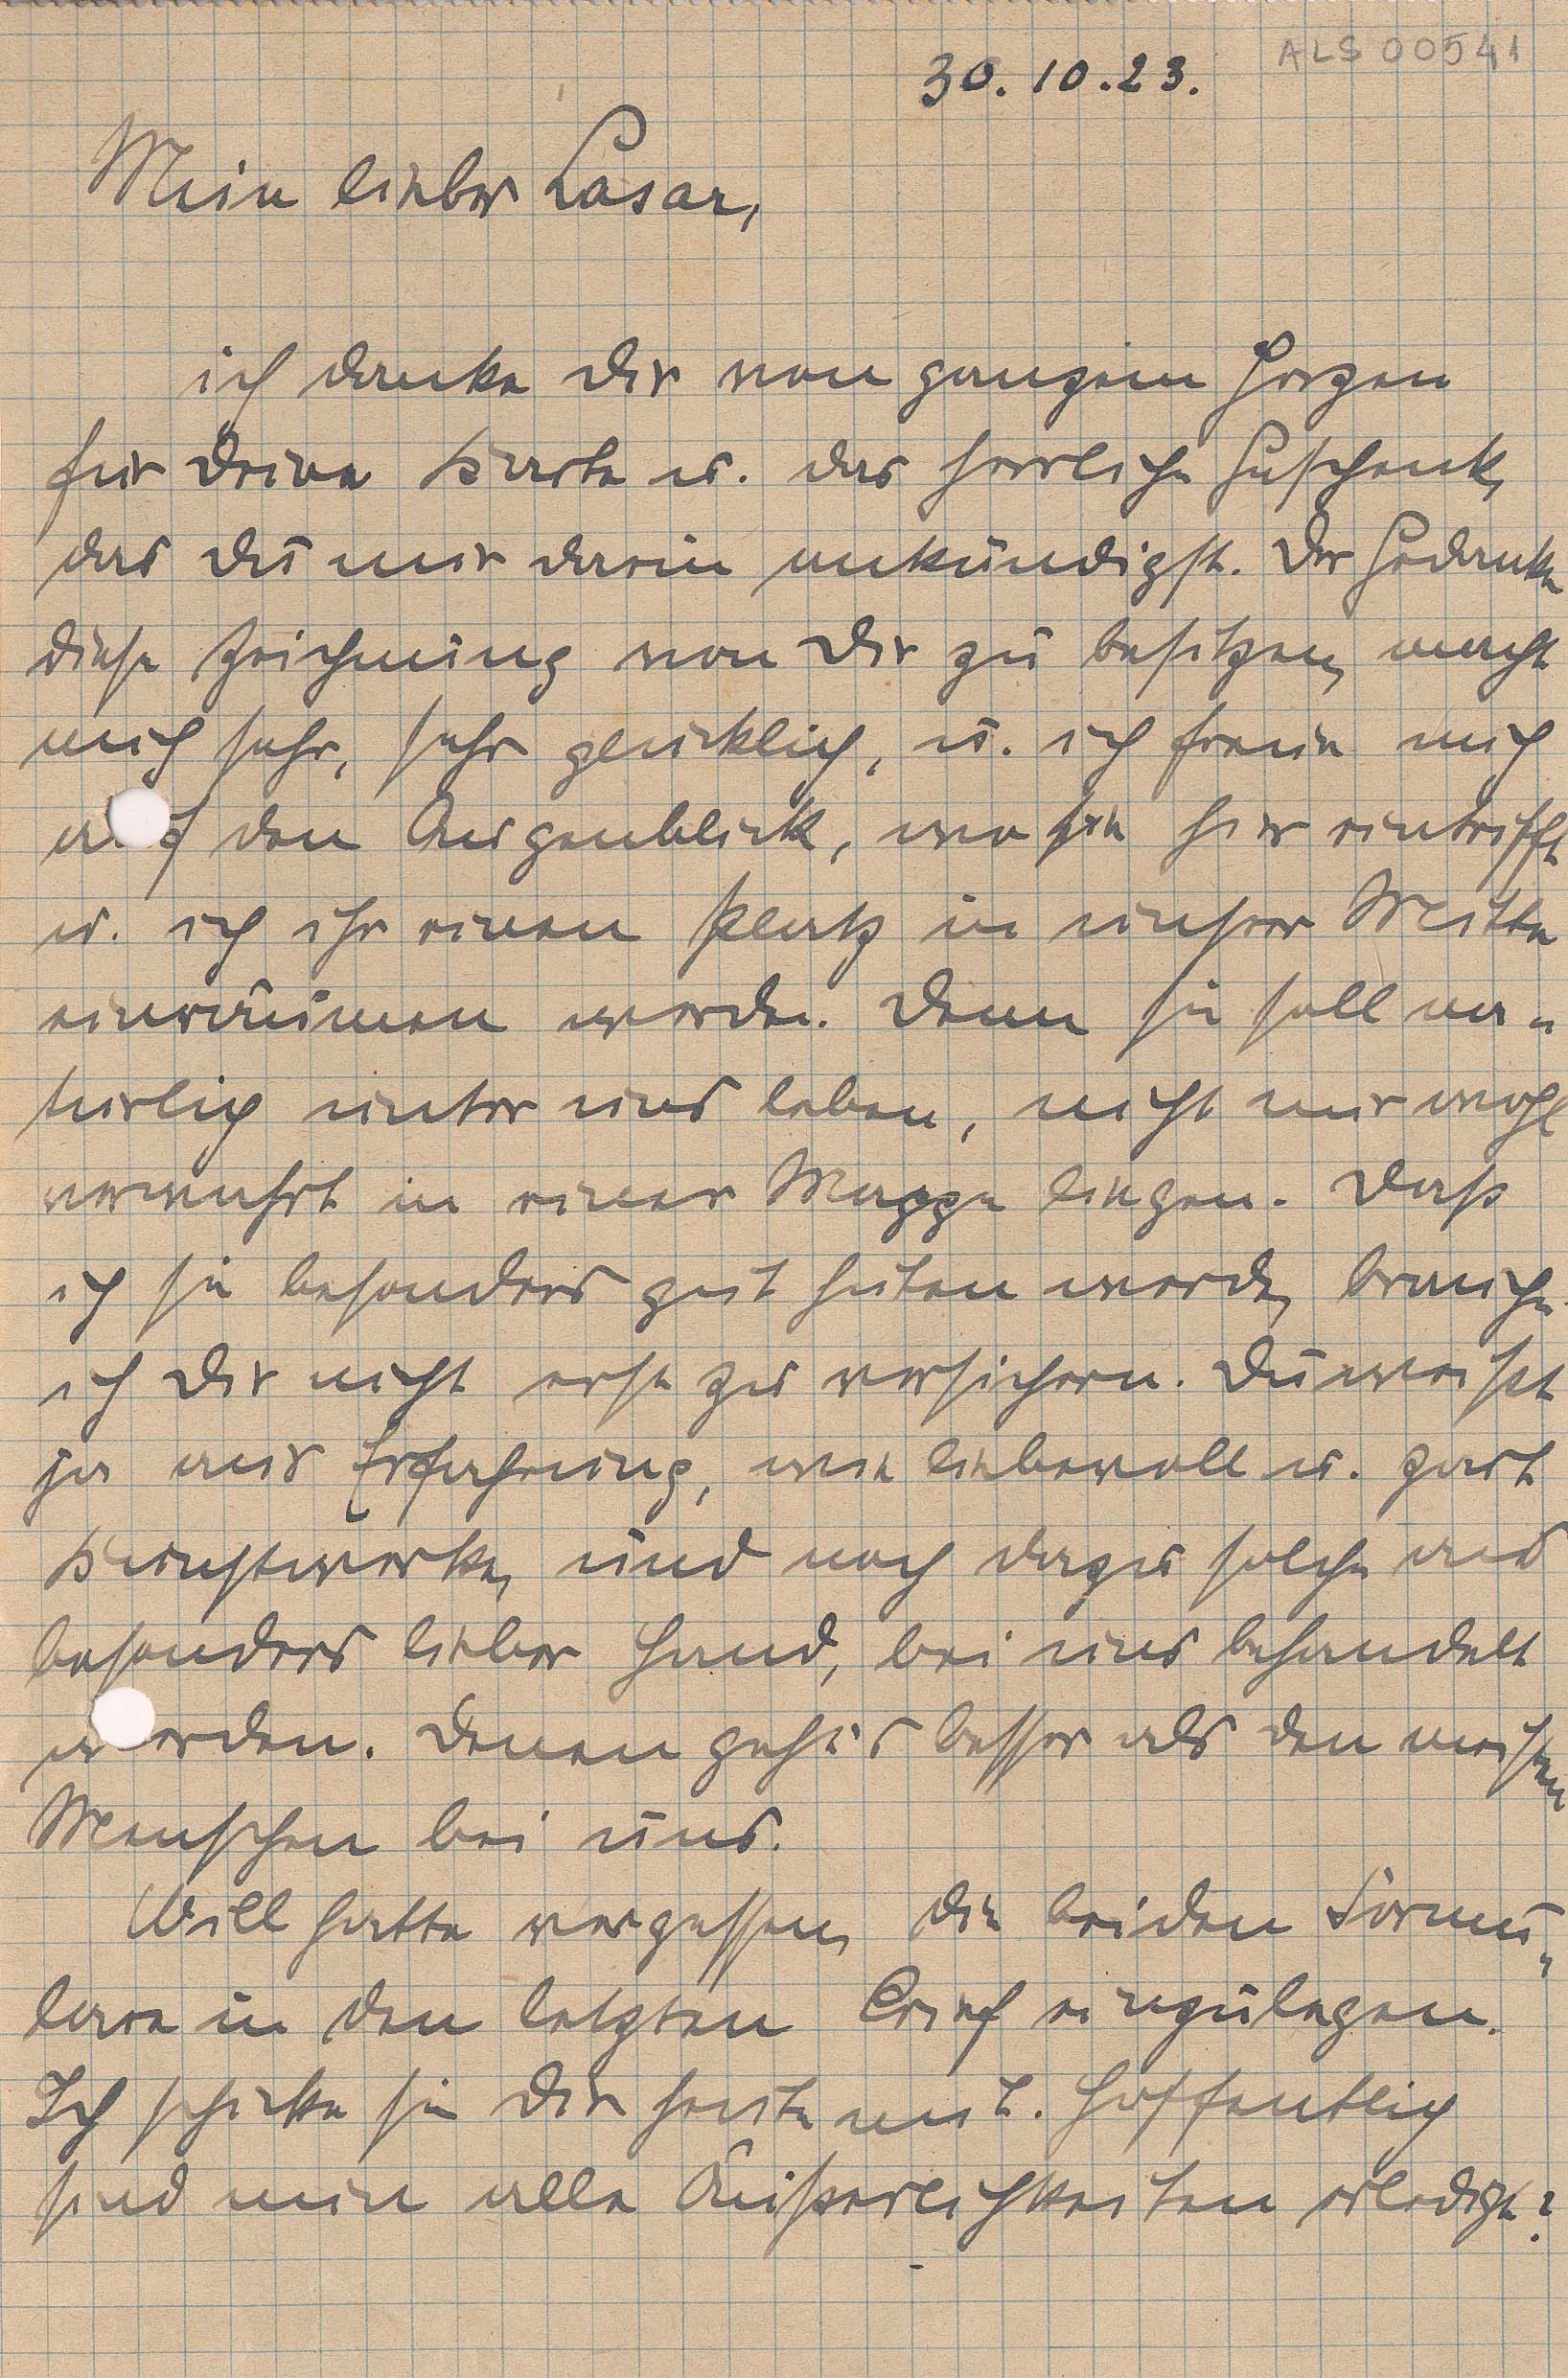 ALS 00541
30.10.23.
Mein lieber Lasar,
ich danke Dir von ganzem Herzen
für Deine Karte u. das herrliche Geschenk,
das Du mir darin ankündigst. Der Gedanke
diese Zeichnung von Dir zu besitzen, macht
mich sehr, sehr glücklich, u. ich freue mich
auf den Augenblick, wo sie hier eintrifft
u. ich ihr einen Platz in unsrer Mitte
einräumen werde. Denn sie soll na-
türlich unter uns leben, nicht nur wohl
verwahrt in einer Mappe liegen. Dass
ich sie besonders gut hüten werde, brauche
ich Dir nicht erst zu versichern. Du weisst
ja aus Erfahrung, wie liebevoll u. zart
Kunstwerke, und noch dazu solche aus
besonders lieber Hand, bei uns behandelt
werden. Denen geht's besser als den meisten
Menschen bei uns.
Will hatte vergessen, die beiden Formu-
lare in den letzten Brief einzulegen.
Ich schicke sie Dir heute mit. Hoffentlich
sind nun alle Äusserlichkeiten erledigt?